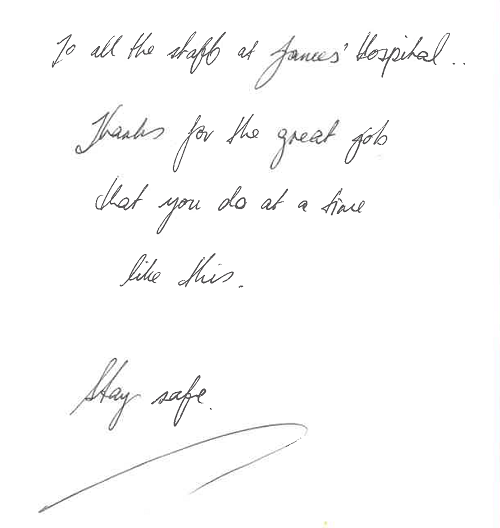 To all the staff at James' Hospital..
Thanks for the great job
that you do at a time
like this.
Stay safe.